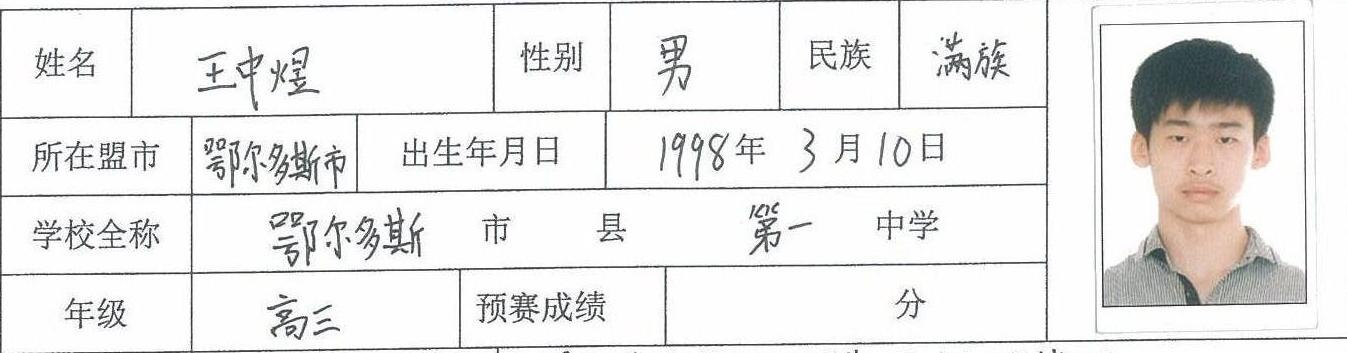 姓名 王中煜 性别 男 民族 满族
所在盟市 鄂尔多斯市 出生年月日 1998年 3月10日
学校全称 鄂尔多斯 市 县 第一 中学
年级 高三 预赛成绩 分